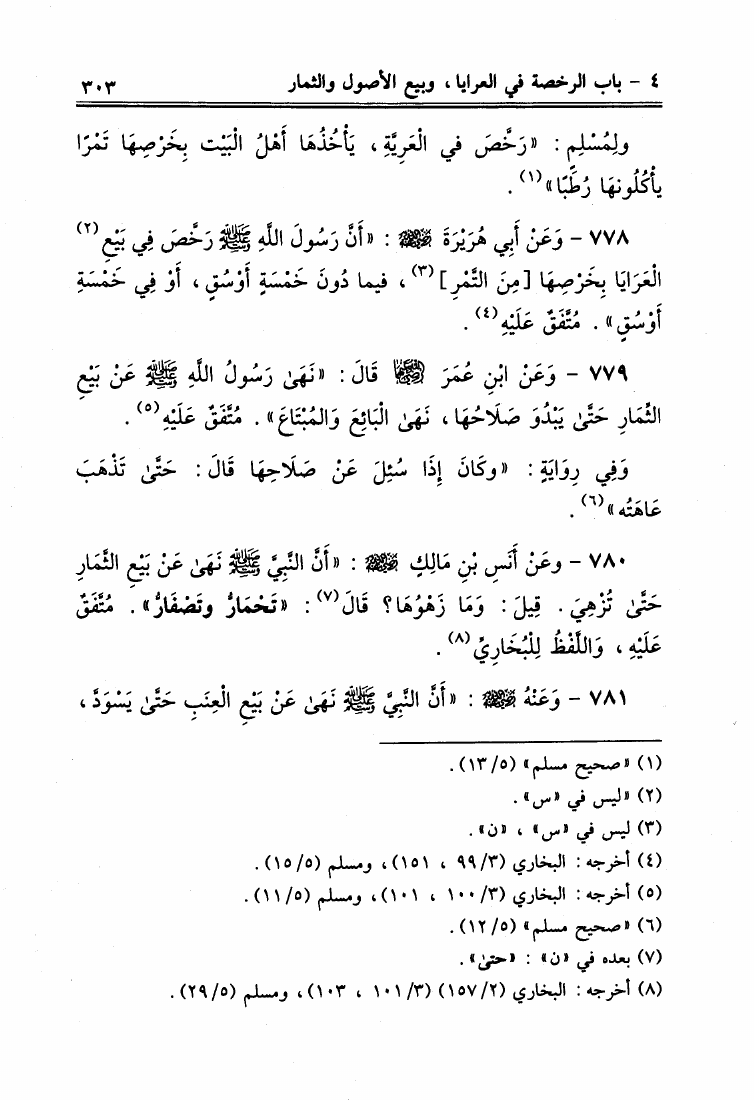 ٤ - باب الرخصة في العرايا ، وبيع الأصول والثمار ٣٠٣
ولِمُسْلِمٍ : «رَخَّصَ في الْعَرِيَّةِ ، يَأْخُذُهَا أَهْلُ الْبَيْت بِخَرْصِهَا تَمْرًا
يأْكُلُونهَا رُطَبًا»(١) .
٧٧٨ - وَعَنْ أَبِي هُرَيْرَةَ رضي الله عنه : «أَنَّ رَسُولَ اللَّهِ ﷺ رَخَّصَ فِي بَيْعِ(٢)
الْعَرَايَا بِخَرْصِهَا [مِنَ التَّمْرِ](٣) ، فيما دُونَ خَمْسَةِ أَوْسُقٍ ، أَوْ فِي خَمْسَةِ
أَوْسُقٍ» . مُتَّفَقٌ عَلَيْهِ(٤) .
٧٧٩ - وَعَنْ ابْنِ عُمَرَ رضي الله عنهما قَالَ : «نَهَىٰ رَسُولُ اللَّهِ ﷺ عَنْ بَيْعِ
الثِّمَارِ حَتَّىٰ يَبْدُوَ صَلَاحُهَا ، نَهَىٰ الْبَائِعَ وَالمُبْتَاعَ» . مُتَّفَقٌ عَلَيْهِ(٥) .
وَفِي رِوَايَةٍ : «وكَانَ إِذَا سُئِلَ عَنْ صَلَاحِهَا قَالَ : حَتَّىٰ تَذْهَبَ
عَاهَتُه»(٦) .
٧٨٠ - وعَنْ أَنَسِ بْنِ مَالِكٍ رضي الله عنه : «أَنَّ النَّبِيَّ ﷺ نَهَىٰ عَنْ بَيْعِ الثِّمَارِ
حَتَّىٰ تُزْهِيَ . قِيلَ : وَمَا زَهْوُهَا؟ قَالَ(٧) : «تَحْمَارُّ وتَصْفَارُّ» . مُتَّفَقٌ
عَلَيْهِ ، وَاللَّفْظُ لِلْبُخَارِيِّ(٨) .
٧٨١ - وَعَنْهُ رضي الله عنه : «أَنَّ النَّبِيَّ ﷺ نَهَىٰ عَنْ بَيْعِ الْعِنَبِ حَتَّىٰ يَسْوَدَّ ،
(١) «صحيح مسلم» (١٣/٥) .
(٢) «ليس في «س» .
(٣) ليس في «س» ، «ن» .
(٤) أخرجه : البخاري (٩٩/٣ ، ١٥١) ، ومسلم (١٥/٥) .
(٥) أخرجه : البخاري (١٠٠/٣ ، ١٠١) ، ومسلم (١١/٥) .
(٦) «صحيح مسلم» (١٢/٥) .
(٧) بعده في «ن» : «حتىٰ» .
(٨) أخرجه : البخاري (١٥٧/٢) (١٠١/٣ ، ١٠٣) ، ومسلم (٢٩/٥) .